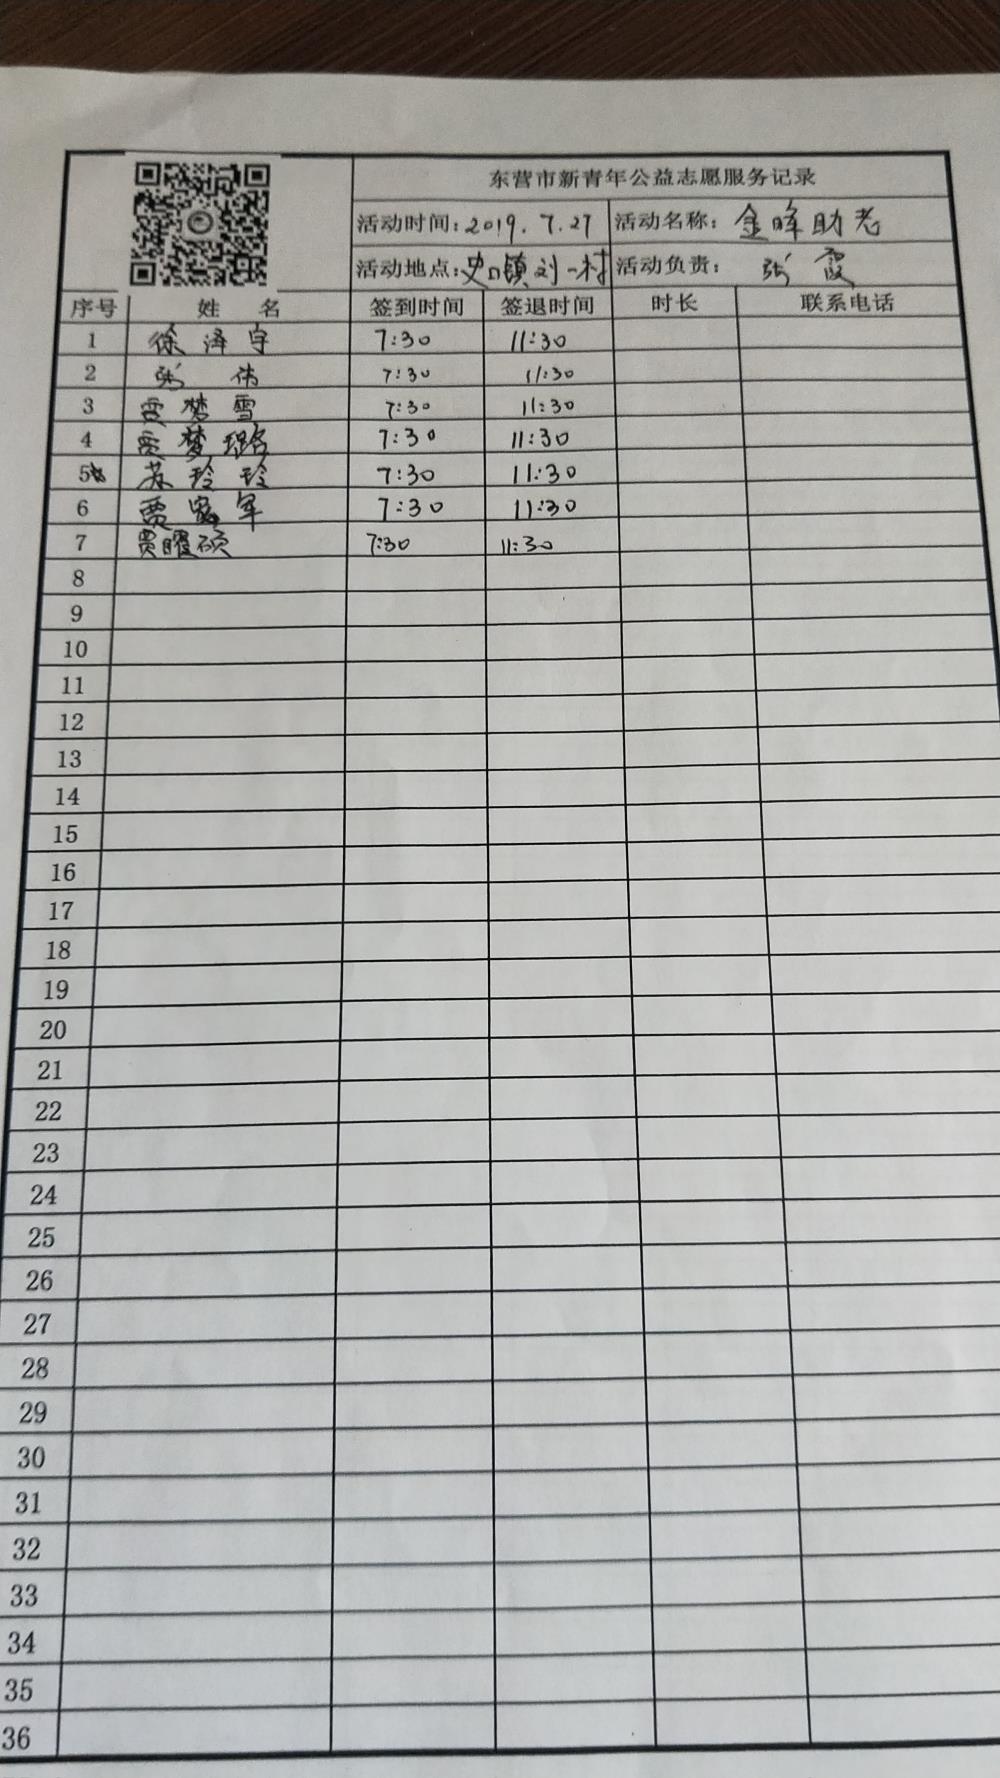 东营市新青年公益志愿服务记录
活动时间:2019.7.27 活动名称:金晖助老
活动地点:史口镇刘一村 活动负责:张霞
序号 姓名 签到时间 签退时间 时长 联系电话
1 徐泽宇 7:30 11:30
2 张伟 7:30 11:30
3 贾梦雪 7:30 11:30
4 贾梦璐 7:30 11:30
5 苏玲玲 7:30 11:30
6 贾军 7:30 11:30
7 贾曜硕 7:30 11:30
8
9
10
11
12
13
14
15
16
17
18
19
20
21
22
23
24
25
26
27
28
29
30
31
32
33
34
35
36